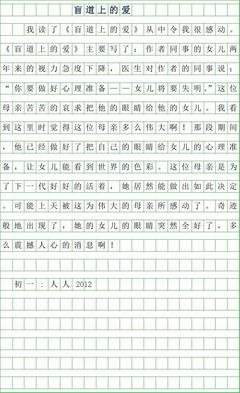 盲道上的爱
我读了《盲道上的爱》从中令我很感动。
《盲道上的爱》主要写了：作者同事的女儿两
年来的视力急度下降，医生对作者的同事说：
“你要做好心理准备——女儿将要失明。”这位
母亲苦苦的哀求把他的眼睛给他的女儿。我看
到这里时觉得这位母亲多么伟大啊！那段期间
，他已经做好了把自己的眼睛给女儿的心理准
备，让女儿能看到世界的色彩。这位母亲是为
了下一代好好的活着，她居然能做出如此决定
。可能上天被这为伟大的母亲所感动了。奇迹
般地出现了，她的女儿的眼睛突然全好了，多
么震撼人心的消息啊！
初一：人人 2012